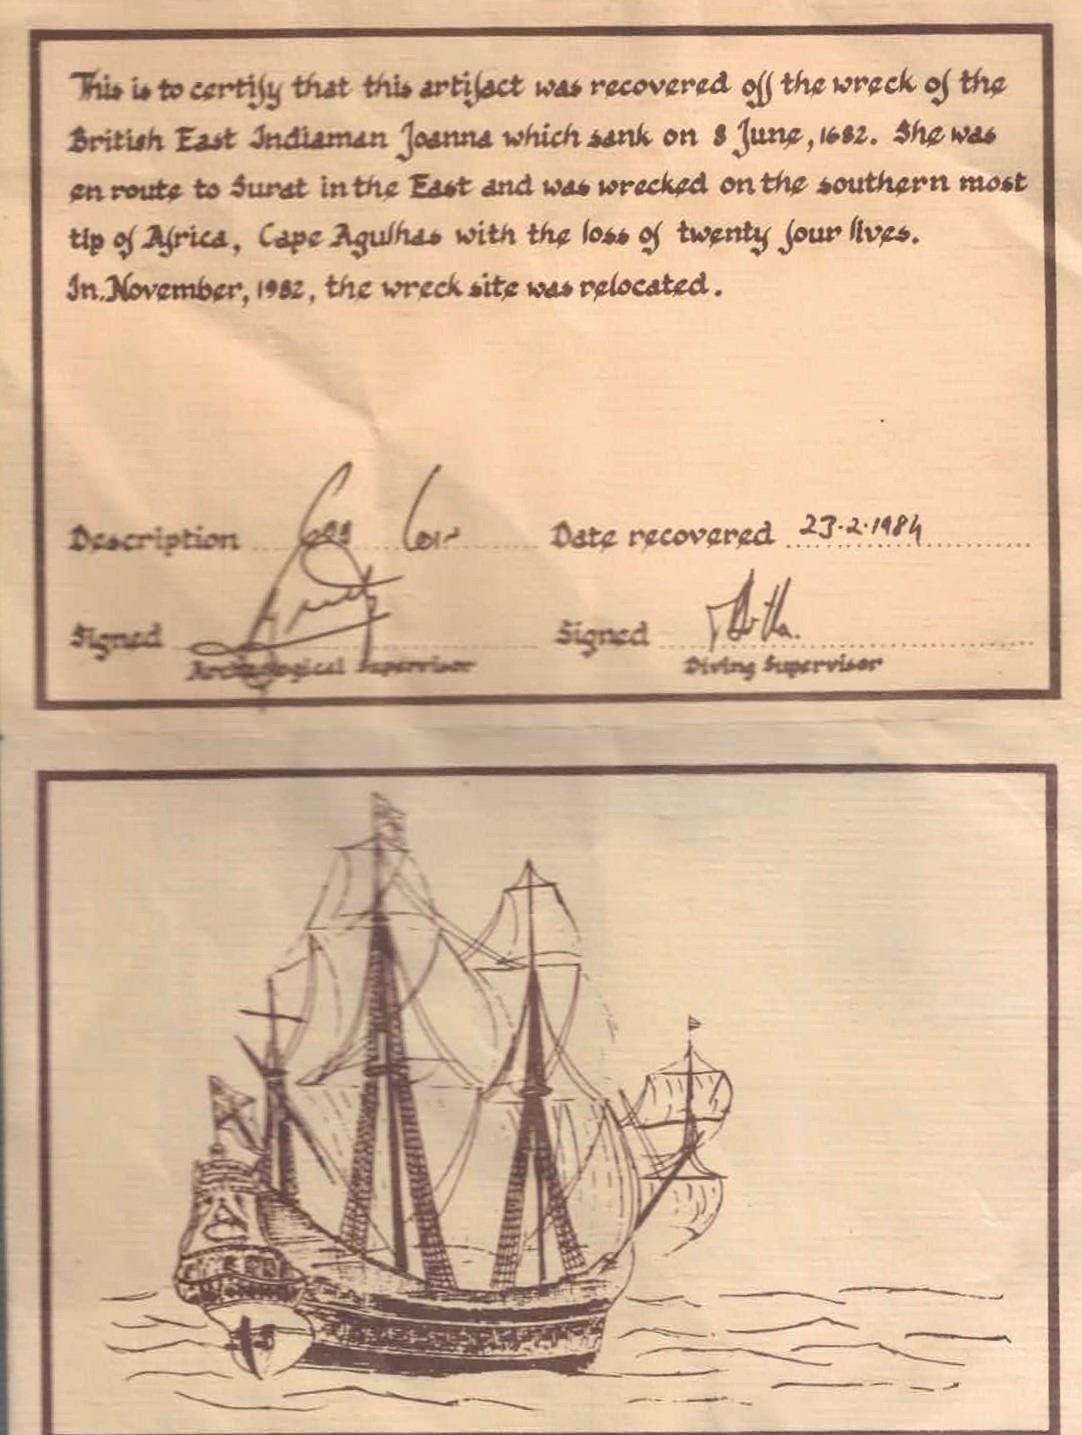 This is to certify that this artifact was recovered off the wreck of the
British East Indiaman Joanna which sank on 8 June, 1682. She was
en route to Surat in the East and was wrecked on the southern most
tip of Africa, Cape Agulhas with the loss of twenty four lives.
In November, 1982, the wreck site was relocated.
Description Date recovered 23·2·1984
Signed Signed
Archaeological Supervisor Diving Supervisor